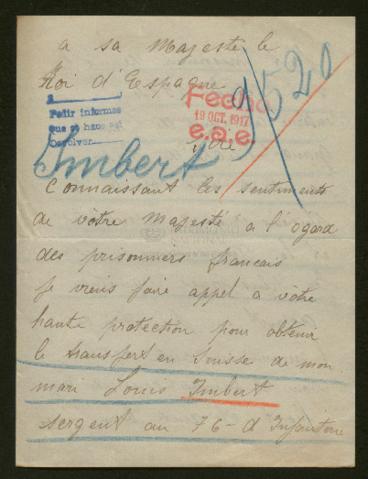 a sa Majesté le
Roi d'Espagne
9520
Pedir informes
que se haga así
Devolver
Fecha
19 OCT. 1917
e.a.e.
Imbert
Sire
Connaissant les sentiments
de votre Majesté a l'ogard
des prisonniers francais
je viens faire appel a votre
haute protection pour obtenir
le transfert en Suisse de mon
mari Louis Imbert
sergent au 76-d'Infanterie